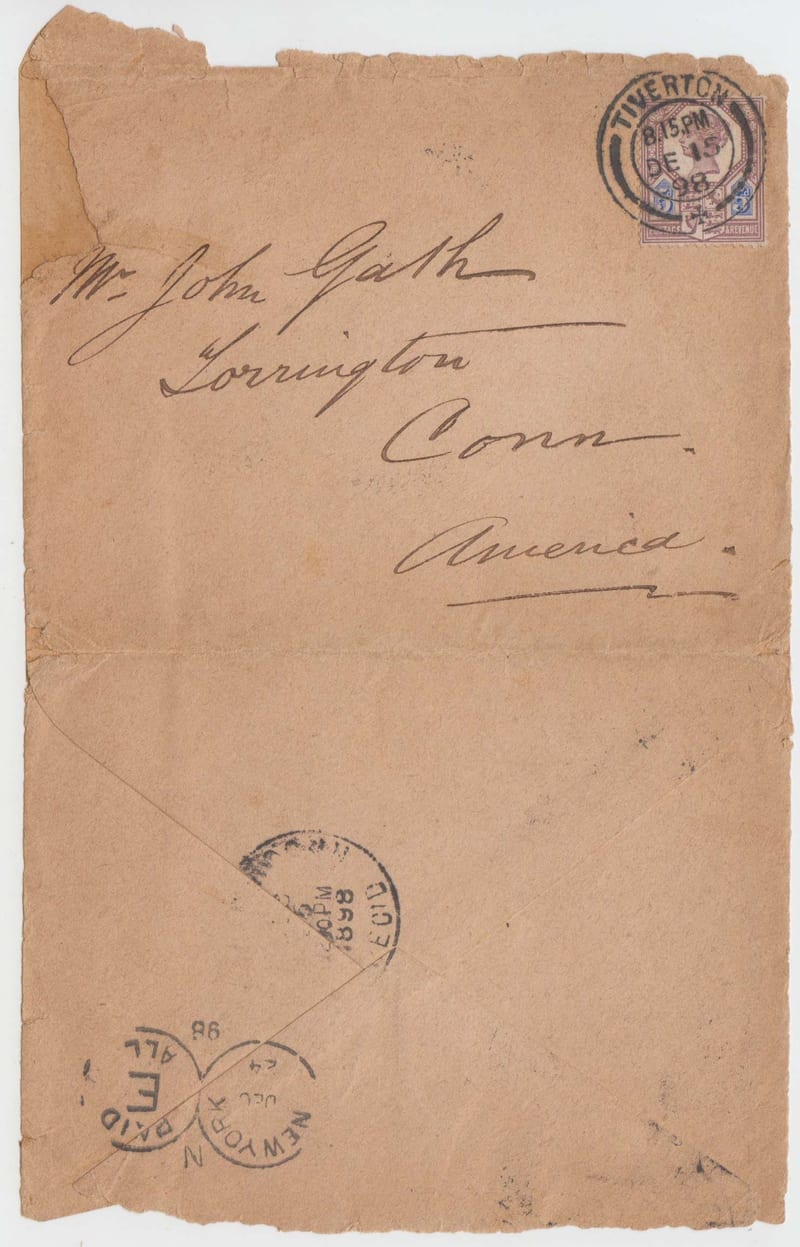 TIVERTON
8.15.PM
DE 15
98
POSTAGE & REVENUE
Mr John Gath
Torrington
Conn.
America.
REC'D
PM
1898
98
PAID
ALL
E
NEW YORK
DEC
24
N